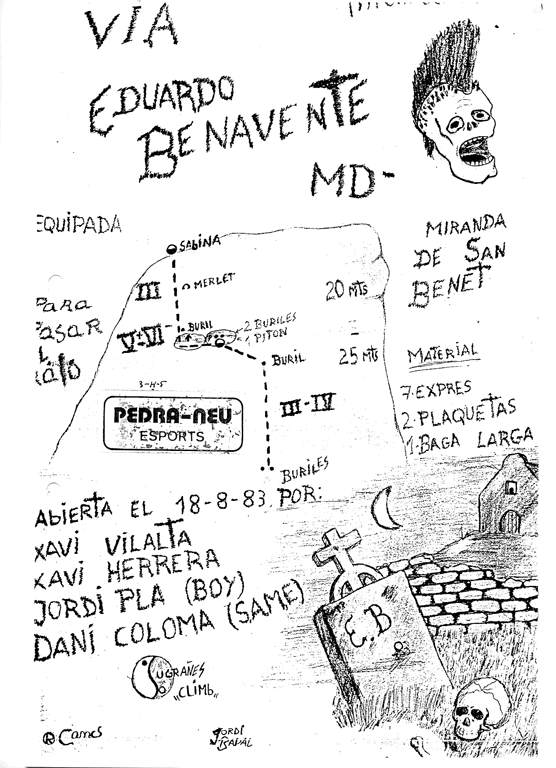 VIA
EDUARDO
BENAVENTE
MD-
EQUIPADA
SABINA
III
MERLET
20 MTS
PARA
PASAR
V-VI-
BURIL
2 BURILES
1 PITON
BURIL
25 MTS
MIRANDA
DE SAN
BENET
MATERIAL
7-EXPRES
2-PLAQUETAS
1-BAGA LARGA
PEDRA-NEU
ESPORTS
III-IV
BURILES
ABIERTA EL 18-8-83 POR:
XAVI VILALTA
XAVI HERRERA
JORDI PLA (BOY)
DANI COLOMA (SAME)
E.B
83
SUGRAÑES
"CLIMB"
JORDI